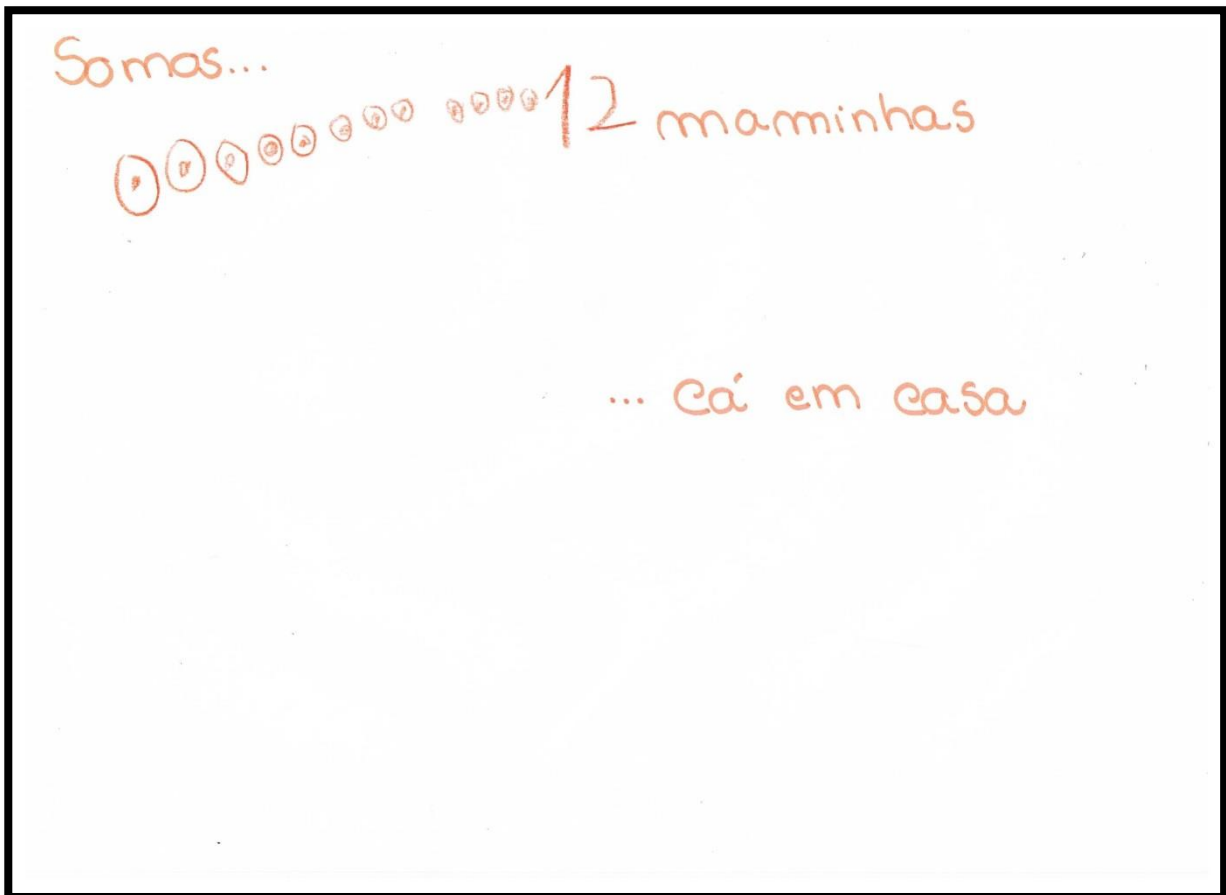 Somos...
12 maminhas
... cá em casa